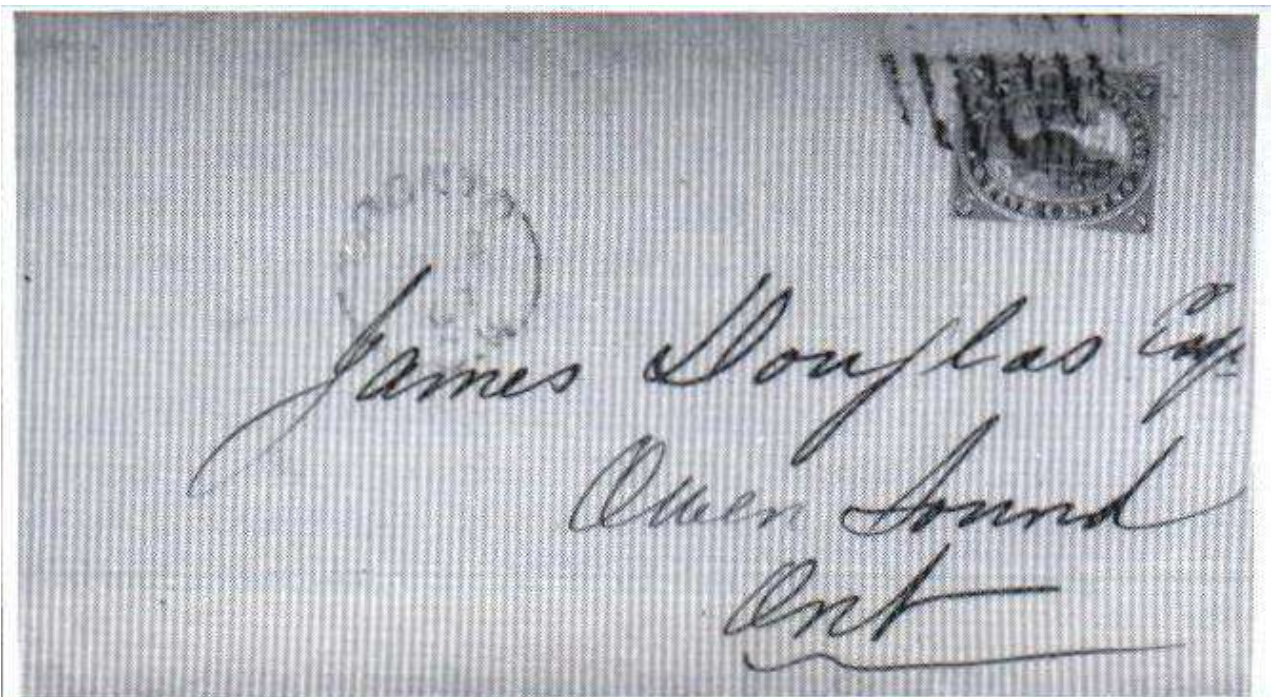 James Douglas Esq.
Owen Sound
Ont